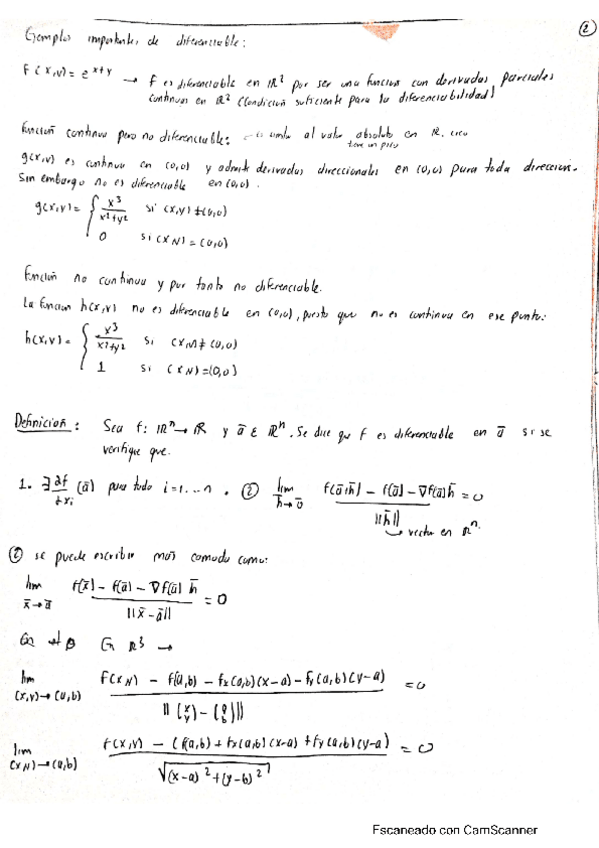 ②
Ejemplos importantes de diferenciable:
f(x,y) = e^{x+y} → f es diferenciable en ℝ² por ser una función con derivadas parciales
continuas en ℝ² (condición suficiente para la diferenciabilidad)
Función continua pero no diferenciable: es similar al valor absoluto en ℝ,
tiene un pico
g(x,y) es continua en (0,0) y admite derivadas direccionales en (0,0) para toda dirección.
Sin embargo no es diferenciable en (0,0).
g(x,y) = { x³/(x²+y²) si (x,y) ≠ (0,0)
0 si (x,y) = (0,0)
Función no continua y por tanto no diferenciable.
La función h(x,y) no es diferenciable en (0,0), puesto que no es continua en ese punto:
h(x,y) = { x³/(x²+y²) si (x,y) ≠ (0,0)
1 si (x,y) = (0,0)
Definición: Sea f: ℝⁿ → ℝ y ā ∈ ℝⁿ. Se dice que f es diferenciable en ā si se
verifique que.
1. ∃ ∂f/∂xᵢ (ā) para todo i=1...n. ② lim h̄→0̄ (f(ā+h̄) - f(ā) - ∇f(ā) h̄)/||h̄|| = 0
↳ vector en ℝⁿ.
② se puede escribir más comodo como:
lim x̄→ā (f(x̄) - f(ā) - ∇f(ā) h̄)/||x̄-ā|| = 0
En ℝ³ →
lim (x,y)→(a,b) (f(x,y) - f(a,b) - fx(a,b)(x-a) - fy(a,b)(y-a))/||(x y) - (a b)|| = 0
lim (x,y)→(a,b) (f(x,y) - (f(a,b) + fx(a,b)(x-a) + fy(a,b)(y-a))/√((x-a)²+(y-b)²) = 0
Escaneado con CamScanner